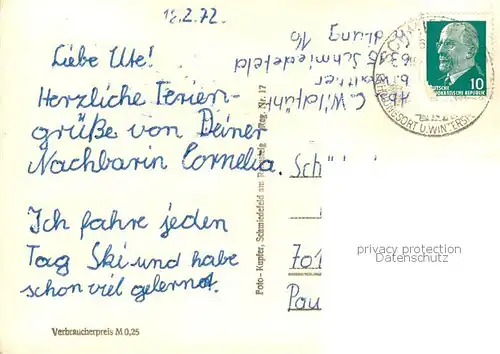 12.2.72
Liebe Ute!
Herzliche Ferien-
grüße von Deiner
Nachbarin Cornelia.
Ich fahre jeden
Tag Ski und habe
schon viel gelernt.
Verbraucherpreis M 0,25
Foto - Kupfer, Schmiedefeld am Rennsteig Reg. Nr. 17
Abs.
C. Wildführ
b. 
6315 Schmiedefeld
16
DEUTSCHE
DEMOKRATISCHE REPUBLIK
10
U. WINTERSP
Sch
701
Pau
privacy protection
Datenschutz